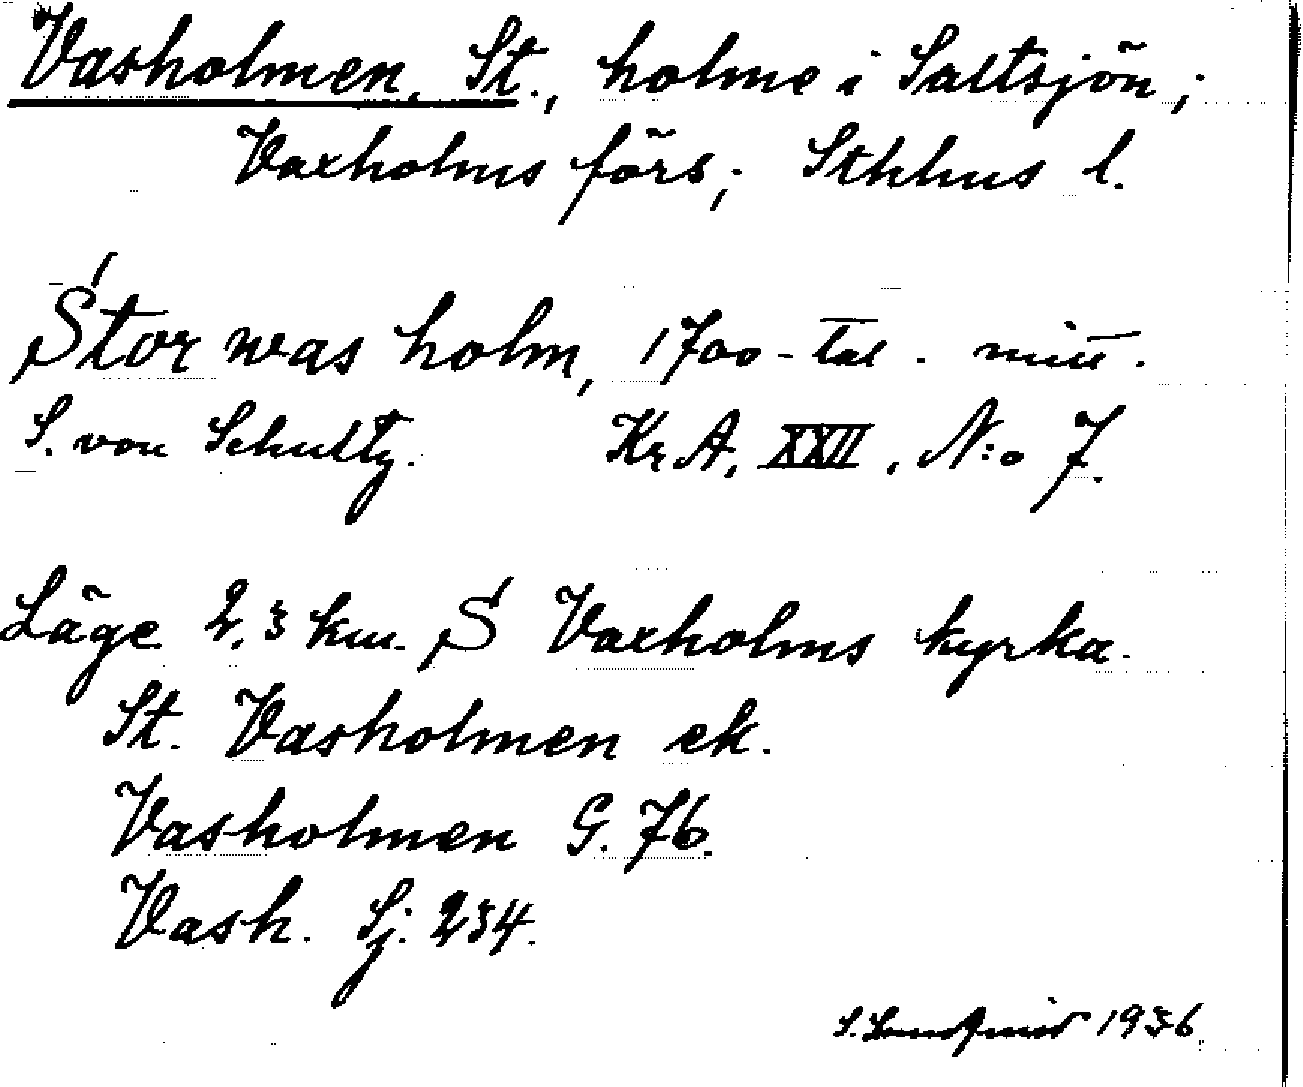 Vasholmen, St., holme i Saltsjön;
Vaxholms förs; Sthlms l.
Stor was holm, 1700-tal. mitt.
S. von Schultz. Kr A, XXII, N:o 7.
Läge 2,3 km. S Vaxholms kyrka.
St. Vasholmen ek.
Vasholmen G. 76.
Vash. Sj. 234.
S. Lundqvist 1936